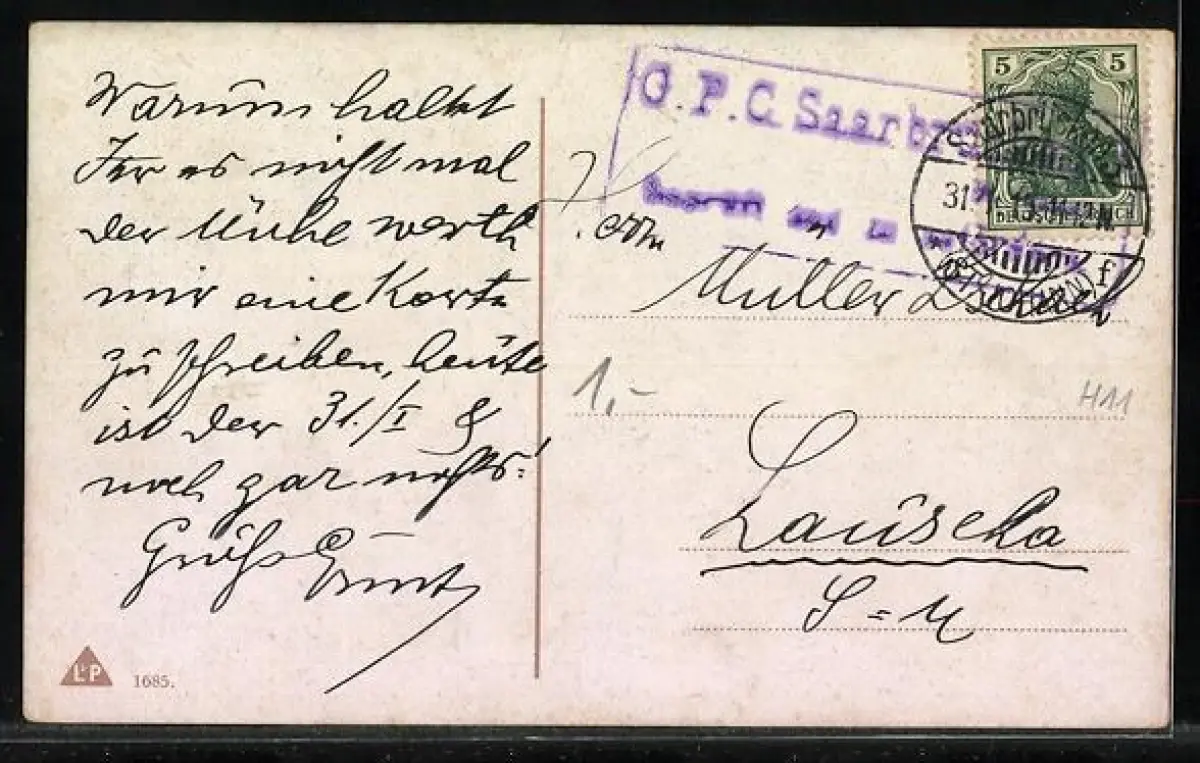 Warum haltet
Ihr es nicht mal
der Mühe werth
mir eine Karte
zu schreiben, heute
ist der 31./I &
noch gar nichts!
Gruß Ernst
L&P
1685.
O. P. C. Saarbrü
5 5
DEUTSCHES REICH
Saarbrücken
31
f
Herrn
Müller
1,-
H11
Lauscha
S=M